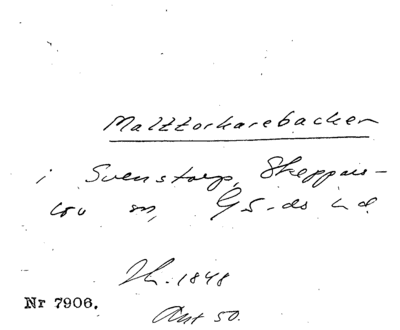 Malttorkarebacken
i Svenstorp, Skeppars-
löv sn, Gs-ds hd
Th. 1848
Nr 7906.
Ant 50.